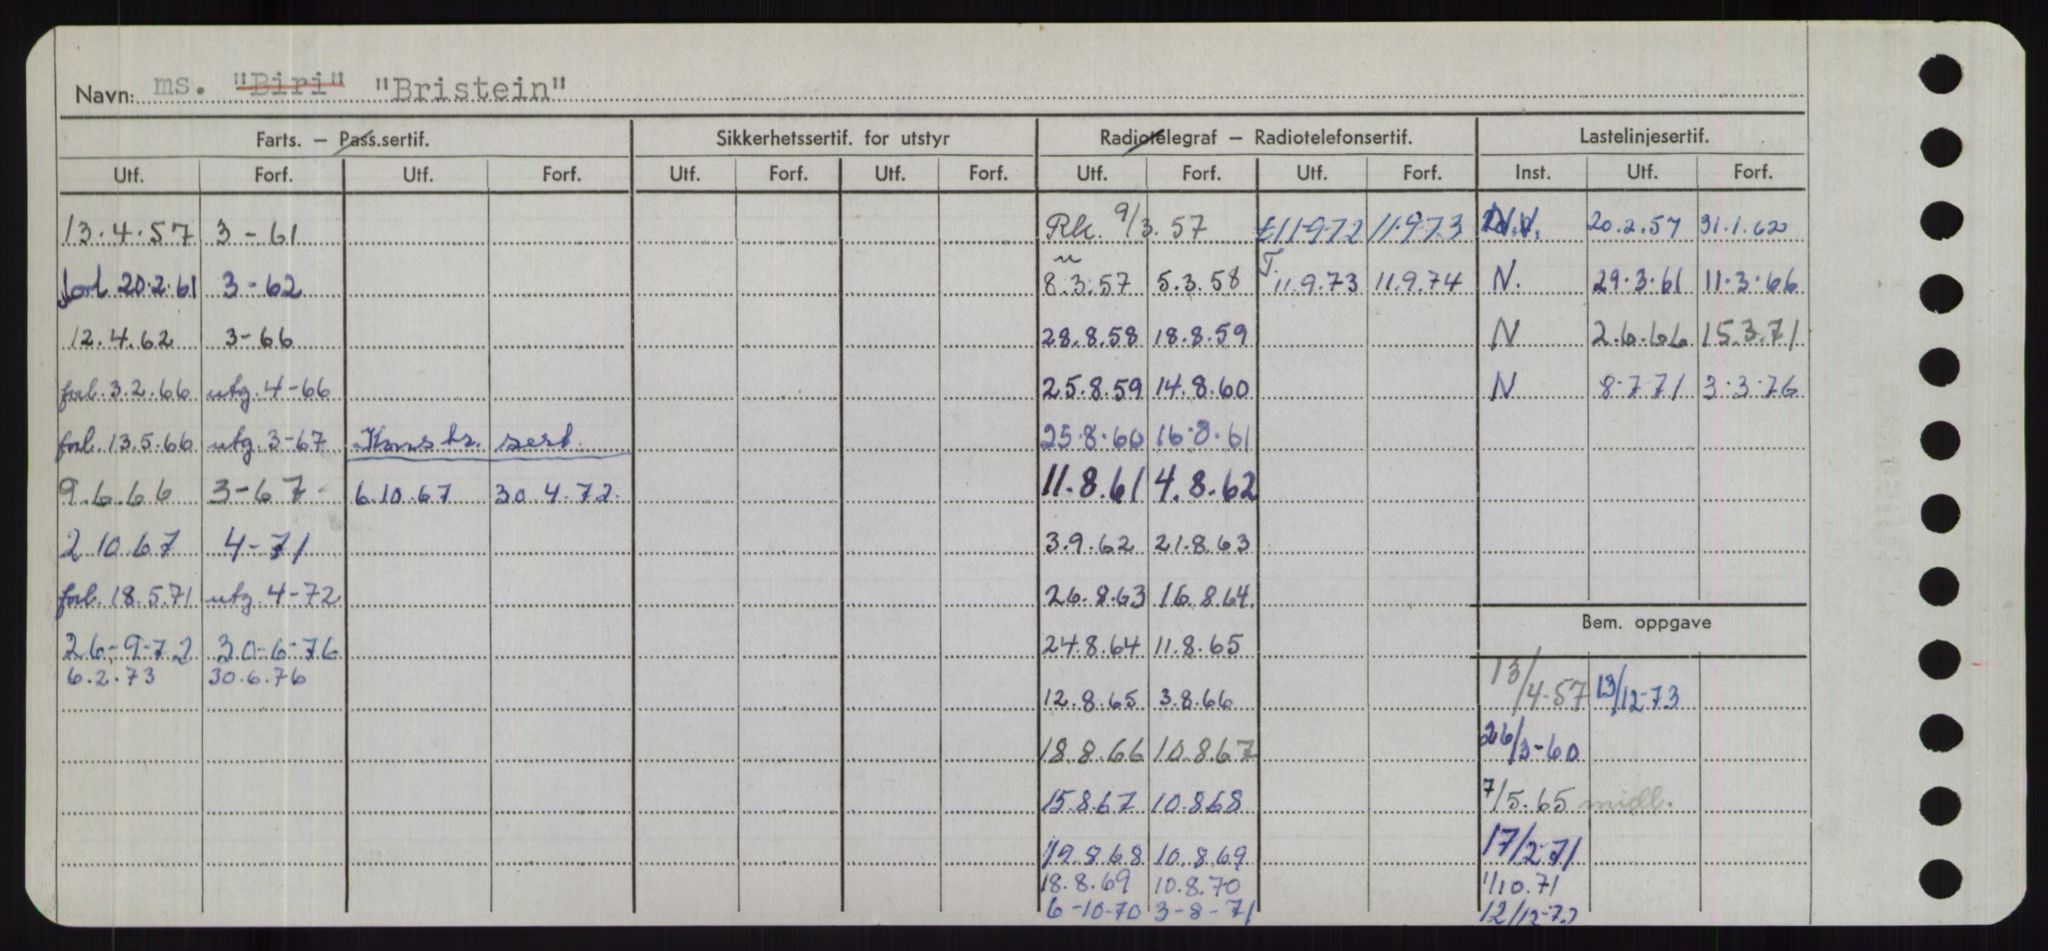 Navn: ms. "Biri" "Bristein"
Farts. — Pass.sertif. Sikkerhetssertif. for utstyr Radiotelegraf — Radiotelefonsertif. Lastelinjesertif.
Utf. Forf. Utf. Forf. Utf. Forf. Utf. Forf. Utf. Forf. Utf. Forf. Inst. Utf. Forf.
13.4.57 3-61 Rk. 9/3.57 11.9.72 11.9.73 N.V. 20.2.57 31.1.62
forl 20.2.61 3-62 8.3.57 5.3.58 T. 11.9.73 11.9.74 N. 29.3.61 11.3.66
12.4.62 3-66 28.8.58 18.8.59 N 2.6.66 15.3.71
forl. 3.2.66 utg. 4-66 25.8.59 14.8.60 N 8-7-71 3.3.76
forl. 13.5.66 utg. 3-67 Konstr. sert. 25.8.60 16.8.61
9.6.66 3-67 6.10.67 30.4.72. 11.8.61 4.8.62
2.10.67 4-71 3.9.62 21.8.63
forl. 18.5.71 utg. 4-72 26.8.63 16.8.64.
Bem. oppgave
26-9-72 30-6-76 24.8.64 11.8.65
6.2.73 30.6.76
12.8.65 3.8.66 13/4-57 13/12-73
18.8.66 10.8.67 26/3-60
15.8.67 10.8.68 7/5.65 midl.
19.8.68 10.8.69 17/2-71
18.8.69 10.8.70 1/10.71
6-10-70 3-8-71 12/12-72